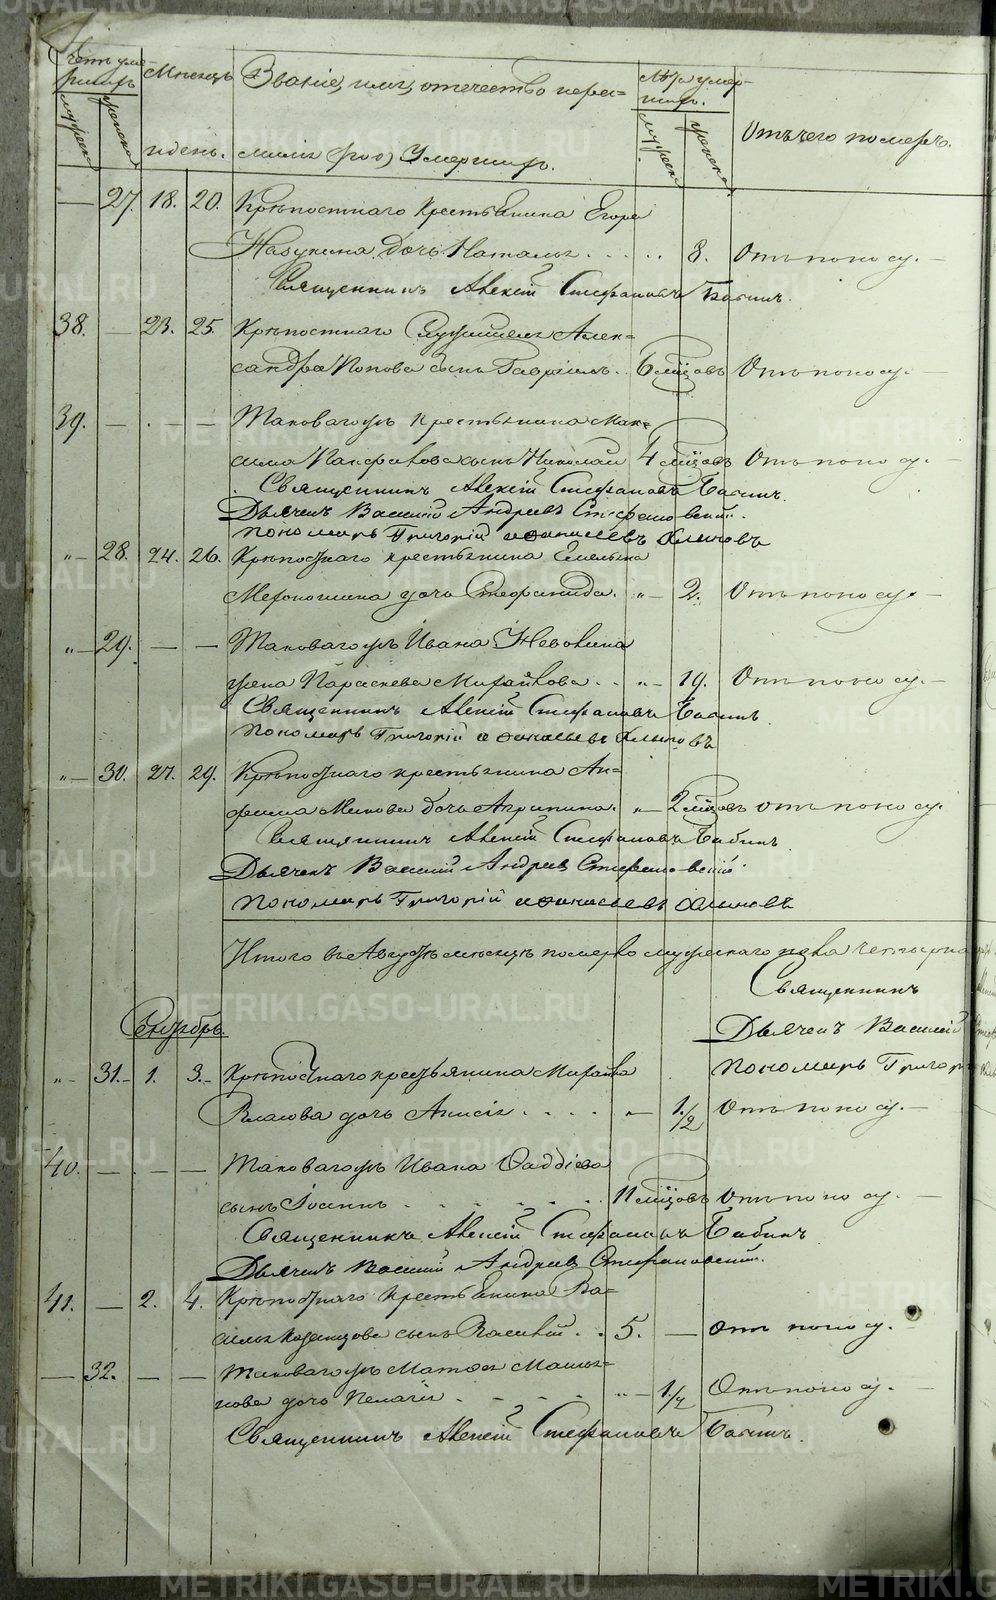 METRIKI.GASO-URAL.RU
Счетъ умершихъ
мужеска
женска
Мѣсяцъ и день.
Званіе, имя, отчество и фамилія (кто) Умершихъ.
Лѣта умершихъ.
мужеска
женска
Отъ чего померъ.
— 27. 18. 20. Крѣпостнаго крестьянина Егора
дочь Наталья . . . . . 8. Отъ поносу. —
Священникъ Алексій Стефановъ Бабинъ.
38. — 23. 25. Крѣпостнаго Алек=
сандра Попова сынъ Гавріилъ. 6 мѣсцовъ Отъ поносу. —
39. — . — — Таковагожъ крестьянина Мак=
сима Панфилова сынъ Николай 4 мѣсцовъ Отъ поносу. —
Священникъ Алексій Стефановъ Бабинъ.
Дьячекъ Василій Андреевъ Стефановскій.
Пономарь Григорій Афанасьевъ
„ — 28. 24. 26. Крѣпостнаго крестьянина Емельяна
дочь Стефанида. „ — 2. Отъ поносу. —
„ — 29. — — Таковагожъ Ивана
жена Параскева Михайлова . . „ — 19. Отъ поносу. —
Священникъ Алексій Стефановъ Бабинъ.
Пономарь Григорій Афанасьевъ
„ — 30. 27. 29. Крѣпостнаго крестьянина Ан=
фима дочь Агрипина. „ — 2 мѣсцовъ Отъ поносу.
Священникъ Алексій Стефановъ Бабинъ.
Дьячекъ Василій Андреевъ Стефановскій.
Пономарь Григорій Афанасьевъ
Итого въ Августѣ мѣсяцѣ померло мужескаго пола
Священникъ
Сентябрь.
Дьячекъ Василій
Пономарь
„ — 31. — 1. 3. — Крѣпостнаго крестьянина
Власова дочь Анисія . . . . „ — 1/2 Отъ поносу. —
40. — — — Таковагожъ Ивана Фаддѣева
сынъ Іоаннъ . . . . . 11 мѣсцовъ Отъ поносу. —
Священникъ Алексій Стефановъ Бабинъ
Дьячекъ Василій Андреевъ Стефановскій.
41. — 2. 4. Крѣпостнаго крестьянина Ва=
силья сынъ Василій . . 5. — Отъ поносу. —
— 32. — — Таковагожъ Матвея
дочь Пелагія . - - - „ — 1/4 Отъ поносу. —
Священникъ Алексій Стефановъ Бабинъ.